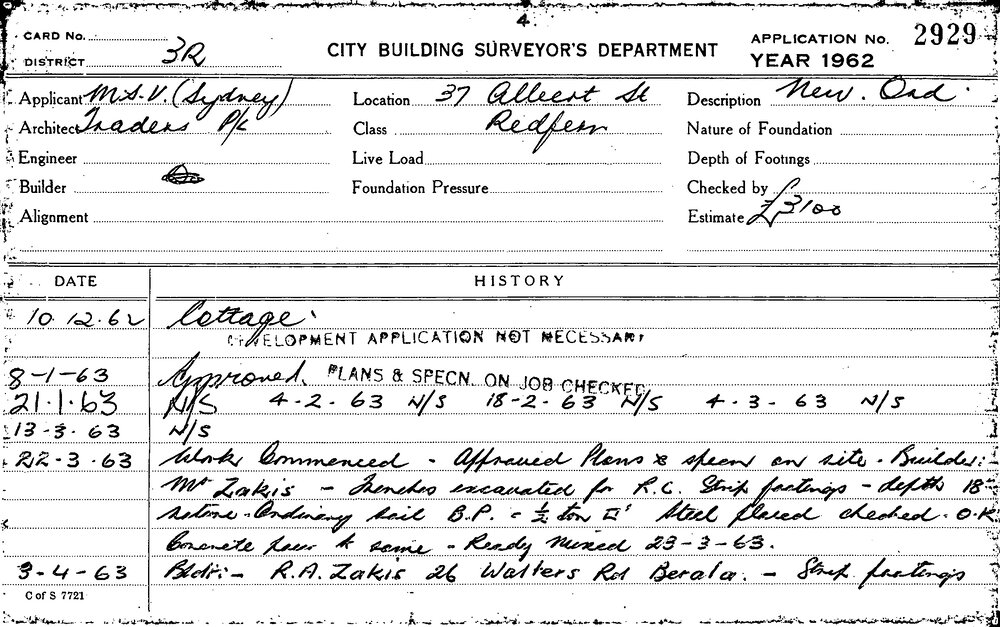 4
CARD No.
CITY BUILDING SURVEYOR'S DEPARTMENT
APPLICATION No. 2929
DISTRICT 3R
YEAR 1962
Applicant M.S.V. (Sydney) Location 37 Albert St Description New. Ord.
Architect Traders P/L Class Redfern Nature of Foundation
Engineer Live Load Depth of Footings
Builder Foundation Pressure Checked by
Alignment Estimate £3100
DATE HISTORY
10.12.62 Cottage.
DEVELOPMENT APPLICATION NOT NECESSARY
8-1-63 Approved. PLANS & SPECN. ON JOB CHECKED
21.1.63 N/S 4-2-63 N/S 18-2-63 N/S 4-3-63 N/S
13-3-63 N/S
22-3-63 Work Commenced - Approved Plans & specn on site. Builder:
Mr Zakis - Trenches excavated for R.C. Strip footings - depth 18"
Ordinary soil B.P. = ½ ton □' Steel placed checked. O.K.
Concrete pour to same - Ready Mixed 23-3-63.
3-4-63 Bldr:- R.A. Zakis 26 Walters Rd Berala. - Strip footings
C of S 7721